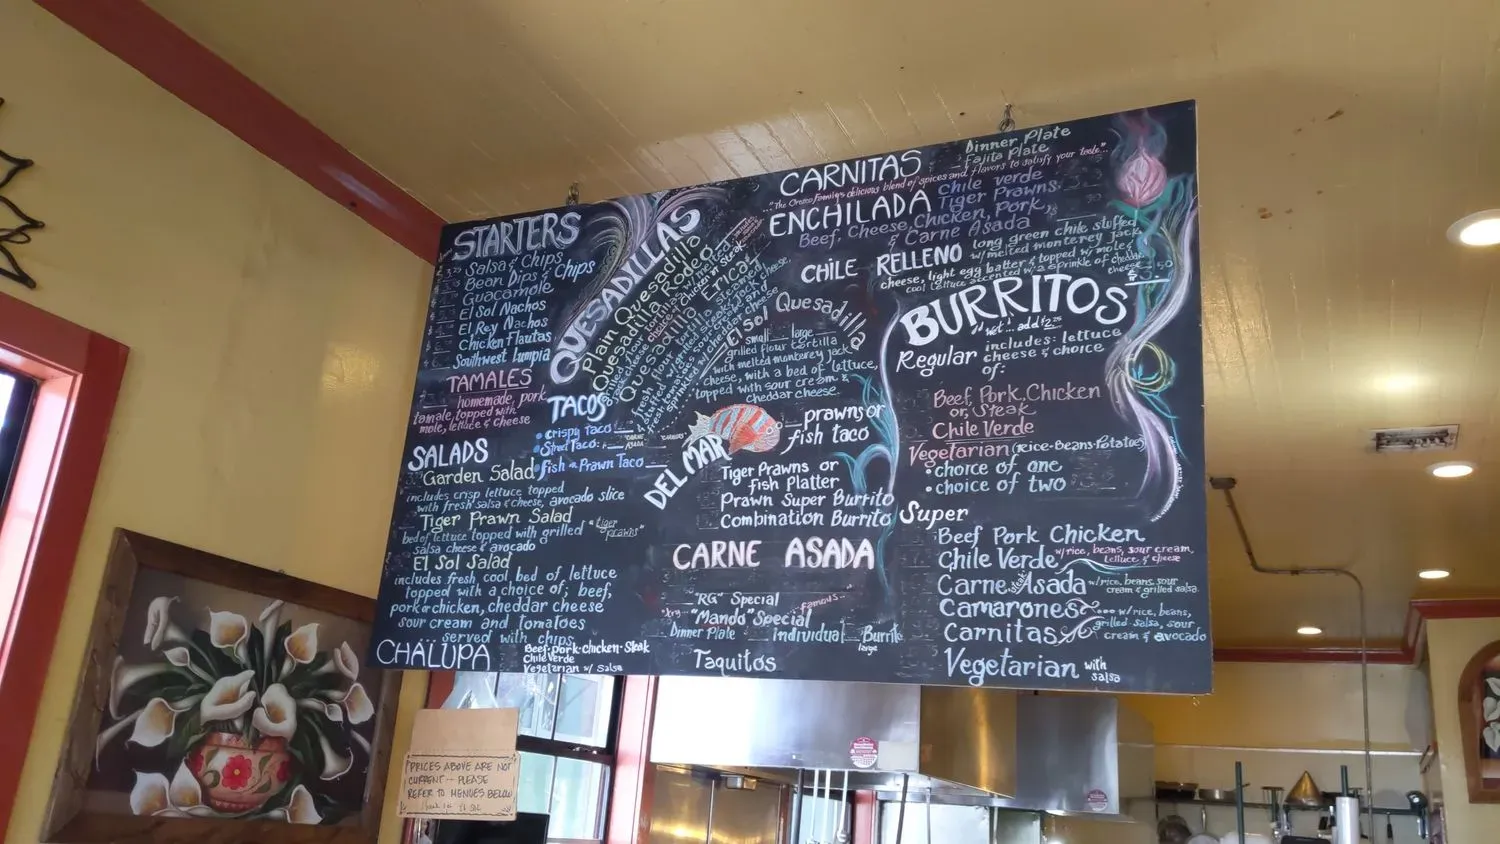 STARTERS
Salsa & Chips
Bean Dips & Chips
Guacamole
El Sol Nachos
El Rey Nachos
Chicken Flautas
Southwest Lumpia
TAMALES
homemade, pork
tamale, topped with
mole, lettuce & cheese
SALADS
Garden Salad
includes crisp lettuce topped
with fresh salsa & cheese, avocado slice
Tiger Prawn Salad
bed of lettuce topped with grilled "tiger prawns"
salsa cheese & avocado
El Sol Salad
includes fresh cool bed of lettuce
topped with a choice of; beef,
pork or chicken, cheddar cheese
sour cream and tomatoes
served with chips
CHALUPA
Beef·pork·chicken·Steak
Chile Verde
Vegetarian w/ Salsa
QUESADILLAS
Plain Quesadilla
Quesadilla Rodeo
Quesadilla Erica
El Sol Quesadilla
small large
grilled flour tortilla
with melted monterey jack
cheese, with a bed of lettuce,
topped with sour cream &
cheddar cheese.
TACOS
crispy Taco
Street Taco:
CARNE ASADA
fish or Prawn Taco
DEL MAR
prawns or
fish taco
Tiger Prawns or
fish Platter
Prawn Super Burrito
Combination Burrito
CARNE ASADA
"RG" Special
"Mando" Special
famous
Dinner Plate individual Burrito
large
Taquitos
CARNITAS
Dinner Plate
Fajita Plate
"The Orozco Family's delicious blend of spices and flavors to satisfy your taste"..
ENCHILADA
Chile verde
Tiger Prawns
Beef, Cheese, Chicken, Pork,
& Carne Asada
CHILE RELLENO
long green chile stuffed
w/ melted monterey Jack
cheese, light egg batter & topped w/ mole &
cool lettuce accented w/ a sprinkle of cheddar
cheese
BURRITOS
"wet"... add $2.25
Regular
includes: lettuce
cheese & choice
of:
Beef, Pork, Chicken
or, Steak
Chile Verde
Vegetarian (Rice-Beans-Potatoes)
choice of one
choice of two
Super
Beef Pork Chicken
Chile Verde w/rice, beans, sour cream,
lettuce & cheese
Carne Asada w/rice, beans, sour
steak
cream & grilled salsa.
Camarones w/rice, beans,
grilled salsa, sour
Carnitas
cream & avocado
Vegetarian with
salsa
PRICES ABOVE ARE NOT
CURRENT -- PLEASE
REFER TO MENUES BELOW